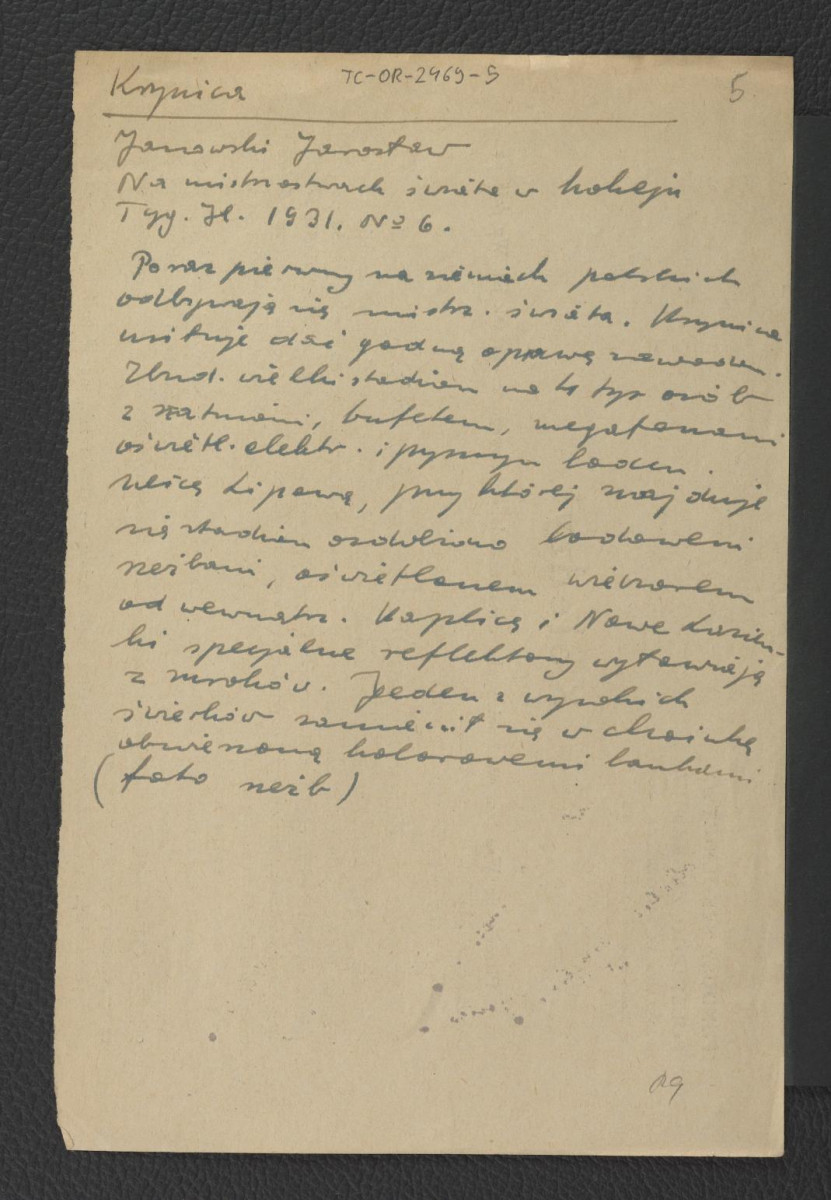 TC-OR-2469-5
5
Krynica
Janowski Jarosław
Na mistrzostwach świata w hokeju
Tyg. Il. 1931. No 6.
Po raz pierwszy na ziemiach polskich
odbywają się mistrz. świata. Krynica
usiłuje dać godną oprawę zawodom.
Zbud. wielki stadion na tys osób
z szatniami, bufetem, megafonami
oświetl. elektr. i pysznym lodem.
ulicę Lipową, przy której znajduje
się stadion ozdobiono lodowemi
rzeźbami, oświetlonem wieczorem
od wewnątrz. Kaplicę i Nowe Łazien-
ki specjalne reflektory wyławiają
z mroków. Jeden z wysokich
świerków zamienił się w choinkę
obwieszoną kolorowemi lampkami
(foto rzeźb)